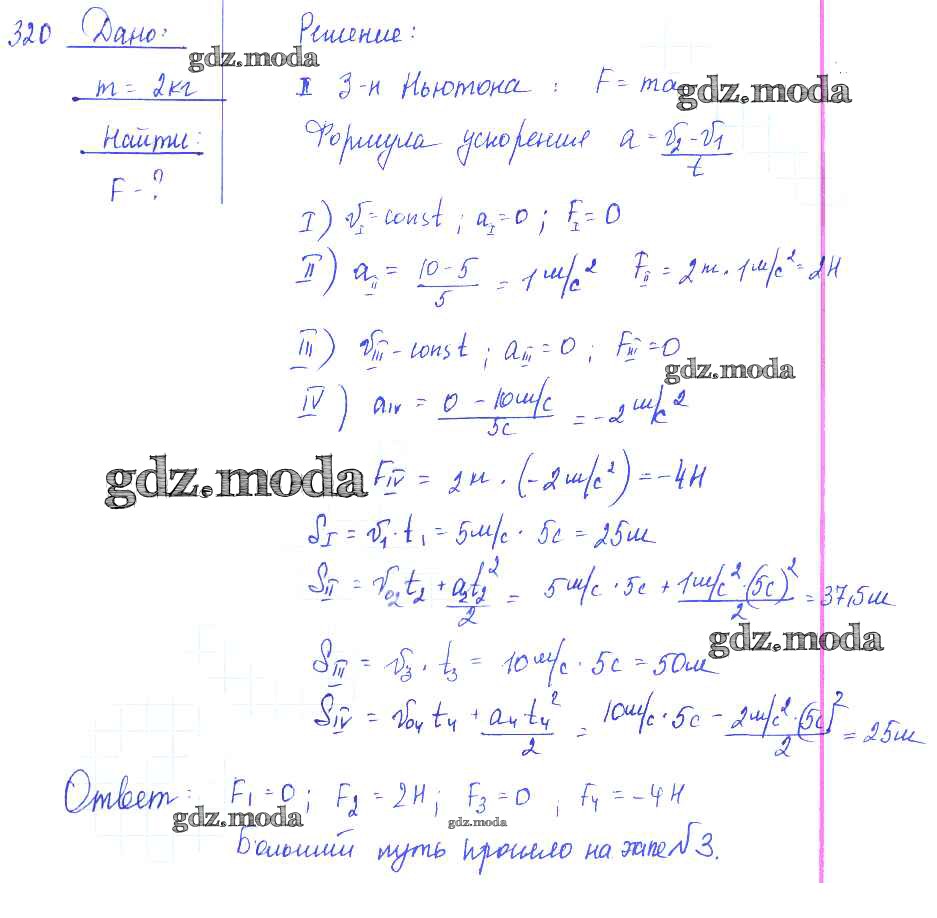 320 Дано: Решение:
gdz.moda
m = 2кг II З-н Ньютона : F = ma
gdz.moda
Найти: Формула ускорения a = v₂ - v₁ / t
F - ?
I) v_I = const ; a_I = 0 ; F_I = 0
II) a_II = 10 - 5 / 5 = 1 м/с² F_II = 2кг · 1 м/с² = 2Н
III) v_III - const ; a_III = 0 ; F_III = 0
gdz.moda
IV) a_IV = 0 - 10м/с / 5с = -2 м/с²
gdz.moda
F_IV = 2кг · (-2 м/с²) = -4Н
S_I = v₁ · t₁ = 5м/с · 5с = 25м
S_II = v₀₂ t₂ + a₂t₂² / 2 = 5м/с · 5с + 1м/с² · (5с)² / 2 = 37,5м
gdz.moda
S_III = v₃ · t₃ = 10м/с · 5с = 50м
S_IV = v₀₄ t₄ + a₄ t₄² / 2 = 10м/с · 5с - 2м/с² · (5с)² / 2 = 25м
Ответ: F₁ = 0 ; F₂ = 2Н ; F₃ = 0 ; F₄ = -4Н
gdz.moda gdz.moda
Больший путь прошло на этапе №3.